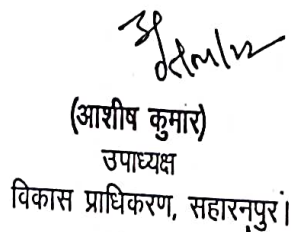 (आशीष कुमार)
उपाध्यक्ष
विकास प्राधिकरण, सहारनपुर।